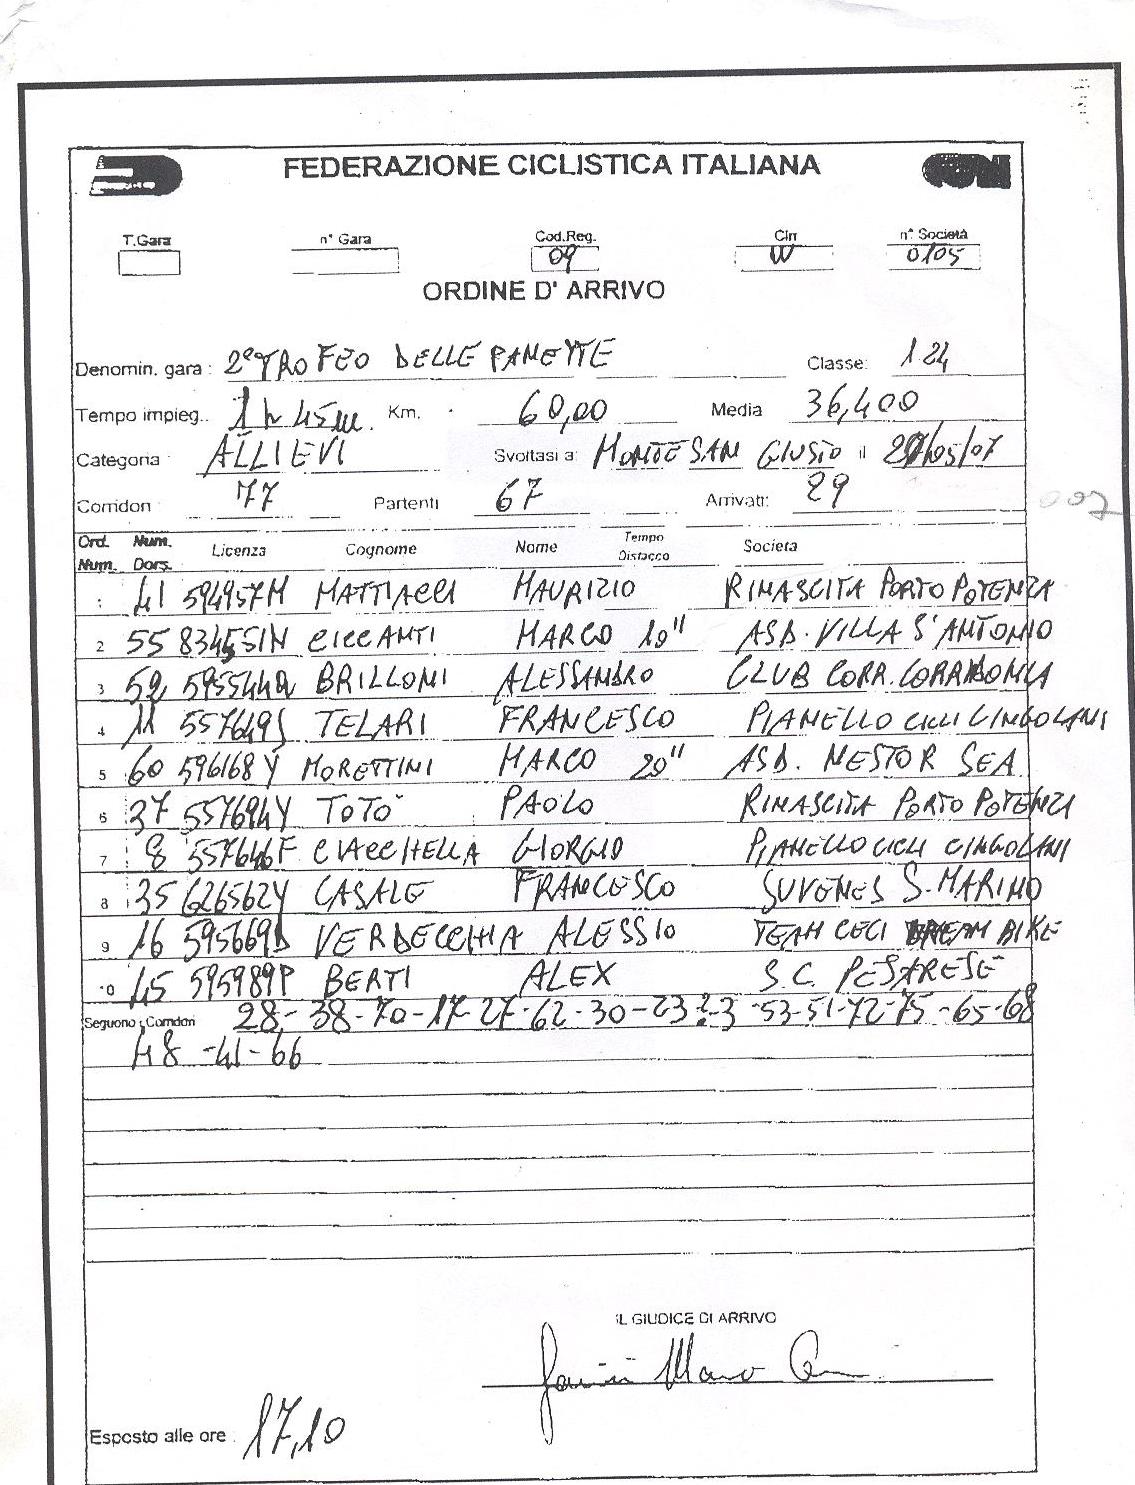 FEDERAZIONE CICLISTICA ITALIANA
T.Gara n° Gara Cod.Reg. Cin n° Società
09 W 0105
ORDINE D' ARRIVO
Denomin. gara: 2° TROFEO DELLE PAMETTE Classe: 1.24
Tempo impieg.. 1h 45m. Km. 60,00 Media 36,400
Categoria ALLIEVI Svoltasi a: MONTE SAN GIUSTO il /05/07
Corridori 77 Partenti 67 Arrivati: 29
007
Ord. Num. Licenza Cognome Nome Tempo Società
Num. Dors. Distacco
41 594957M MATTIACCI MAURIZIO RINASCITA PORTO POTENZA
2 55 834551N CICCANTI MARCO 10" ASD. VILLA S'ANTONIO
3 52 595544Q BRILLONI ALESSANDRO CLUB CORR. CORRIDONIA
4 11 557649S TELARI FRANCESCO PIANELLO CICLI CINGOLANI
5 60 596168Y MORETTINI MARCO 20" ASD. NESTOR SEA
6 37 557694Y TOTO' PAOLO RINASCITA PORTO POTENZA
7 8 557646F CIACCHELLA GIORGIO PIANELLO CICLI CINGOLANI
8 35 626562Y CASALE FRANCESCO JUVENES S. MARINO
9 16 595669D VERDECCHIA ALESSIO TEAM CECI DREAM BIKE
10 45 595989P BERTI ALEX S.C. PESARESE
Seguono i Corridori 28-38-70-17-27-62-30-23 -53-51-72-75-65-68
48-41-66
IL GIUDICE DI ARRIVO
Esposto alle ore 17,10